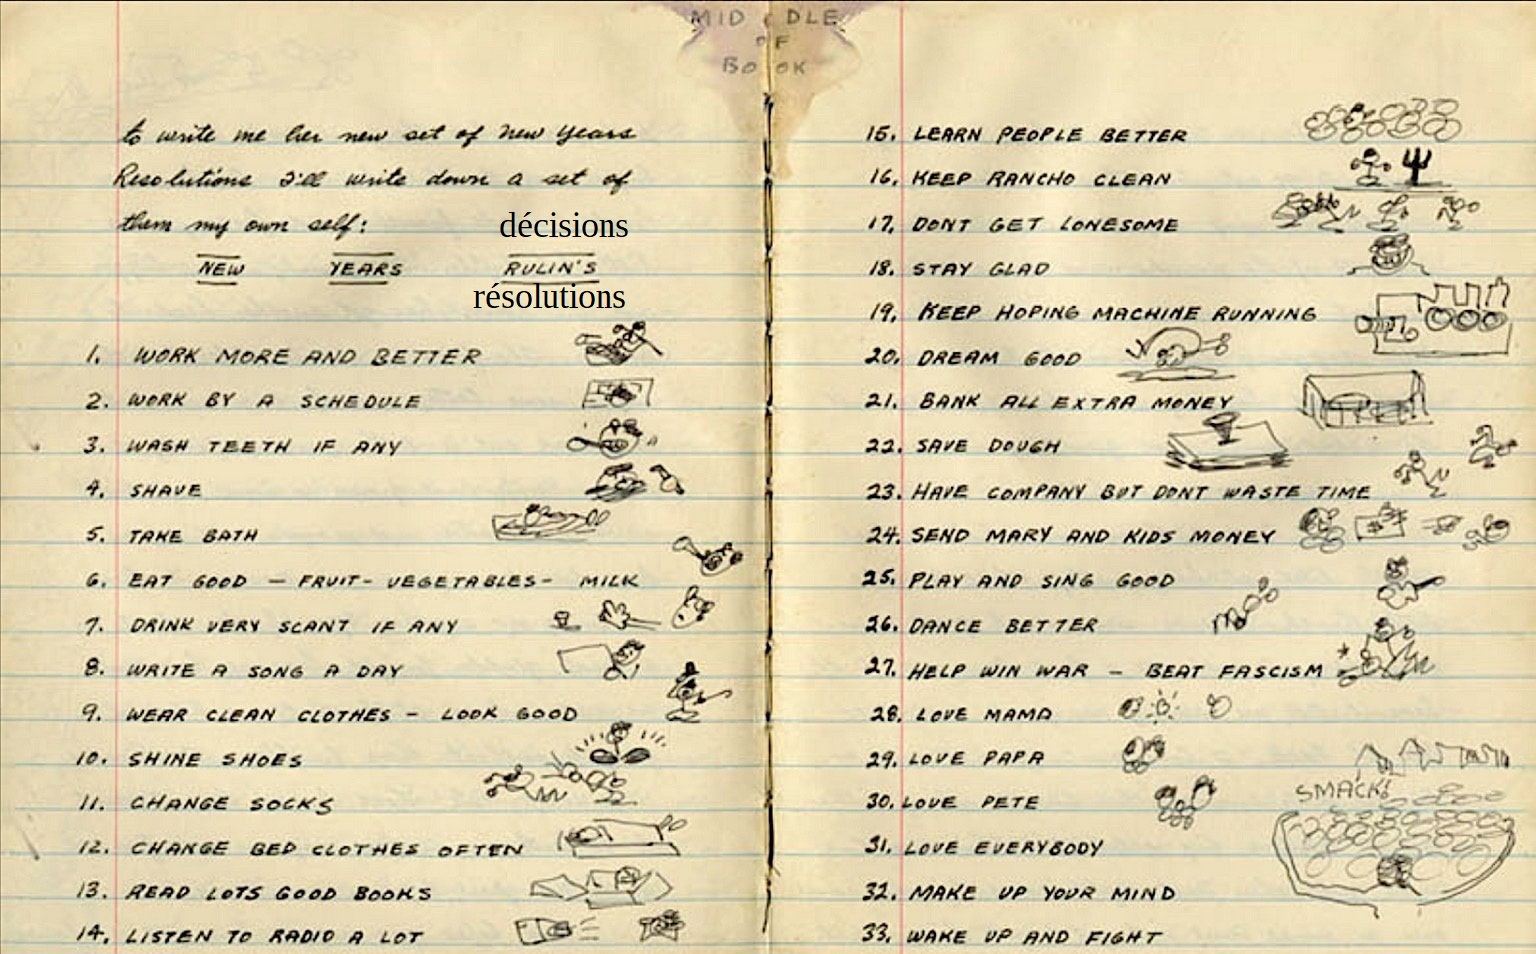 MIDDLE
OF
BOOK
to write me her new set of New Years
Resolutions I'll write down a set of
them my own self:
décisions
NEW YEARS RULIN'S
résolutions
1. WORK MORE AND BETTER
2. WORK BY A SCHEDULE
3. WASH TEETH IF ANY
4. SHAVE
5. TAKE BATH
6. EAT GOOD — FRUIT - VEGETABLES - MILK
7. DRINK VERY SCANT IF ANY
8. WRITE A SONG A DAY
9. WEAR CLEAN CLOTHES — LOOK GOOD
10. SHINE SHOES
11. CHANGE SOCKS
12. CHANGE BED CLOTHES OFTEN
13. READ LOTS GOOD BOOKS
14. LISTEN TO RADIO A LOT
15. LEARN PEOPLE BETTER
16. KEEP RANCHO CLEAN
17. DONT GET LONESOME
18. STAY GLAD
19. KEEP HOPING MACHINE RUNNING
20. DREAM GOOD
21. BANK ALL EXTRA MONEY
22. SAVE DOUGH
23. HAVE COMPANY BUT DONT WASTE TIME
24. SEND MARY AND KIDS MONEY
25. PLAY AND SING GOOD
26. DANCE BETTER
27. HELP WIN WAR — BEAT FASCISM
28. LOVE MAMA
29. LOVE PAPA
30. LOVE PETE
SMACK!
31. LOVE EVERYBODY
32. MAKE UP YOUR MIND
33. WAKE UP AND FIGHT